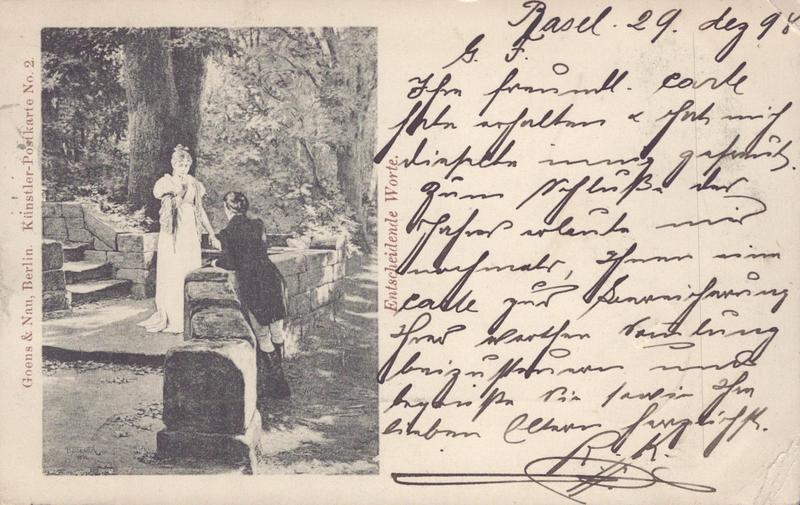 Goens & Nau, Berlin. Künstler-Postkarte No. 2.
Entscheidende Worte.
Basel. 29. dez 98
G. F.
Ihre freundl. carte
habe erhalten & hat mich
dieselbe innig gefreut.
Zum Schluße des
Jahres erlaube mir
nochmals, Ihnen eine
carte zur Bereicherung
Ihrer werthen Samlung
beizusteuern und
begrüße Sie sowie Ihre
lieben Eltern herzlichst.
K. K.